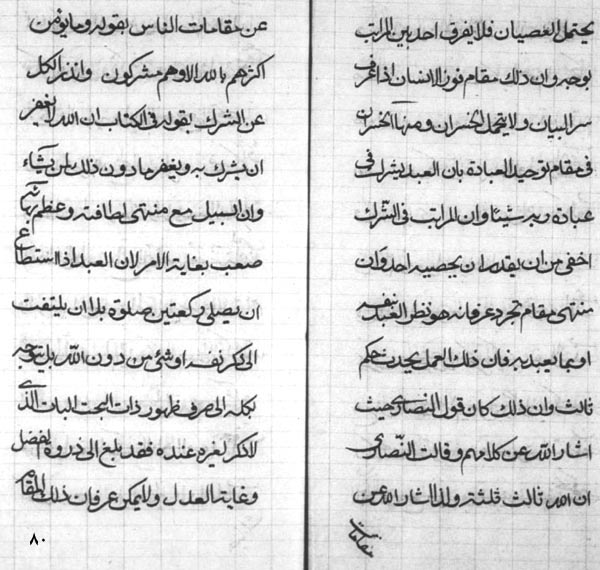 يحتمل العصيان فلا يفرق احد بين المراتب
بوجه وان ذلك مقام فوز الانسان اذا عرف
سر البيان ولا يتحمل الخسران ومنها الخسران
فى مقام توحيد العبادة بان العبد يشرك فى
عبادة ربه شيئا وان المراتب فى الشرك
اخفى من ان يقدر ان يحصيه احد وان
منتهى مقام تجرد عرفانه هو نظر العبد بنفسه
او بما يعبد به فان ذلك العمل يحدث حكم
ثالث وان ذلك كان قول النصارى حيث
اشار الله عن كلامهم و قالت النصارى
ان الله ثالث ثلثة ولذا اشار الله عن
مقامات
عن مقامات الناس بقوله وما يؤمن
اكثرهم بالله الا وهم مشركون وانذر الكل
عن الشرك بقوله فى الكتاب ان الله لا يغفر
ان يشرك به ويغفر ما دون ذلك لمن يشاء
وان السبيل مع منتهى لطافته وعظم بهائه
صعب بغاية الامر لان العبد اذا استطاع
ان يصلى ركعتين صلوة بلا ان يلتفت
الى ذكر نفسه او شئ من دون الله بل يتوجه
بكله الى صرف ظهور ذات البحت البات الذى
لا ذكر لغيره عنده فقد بلغ الى ذروة الفضل
وغاية العدل ولا يمكن عرفان ذلك المقام
٨٠